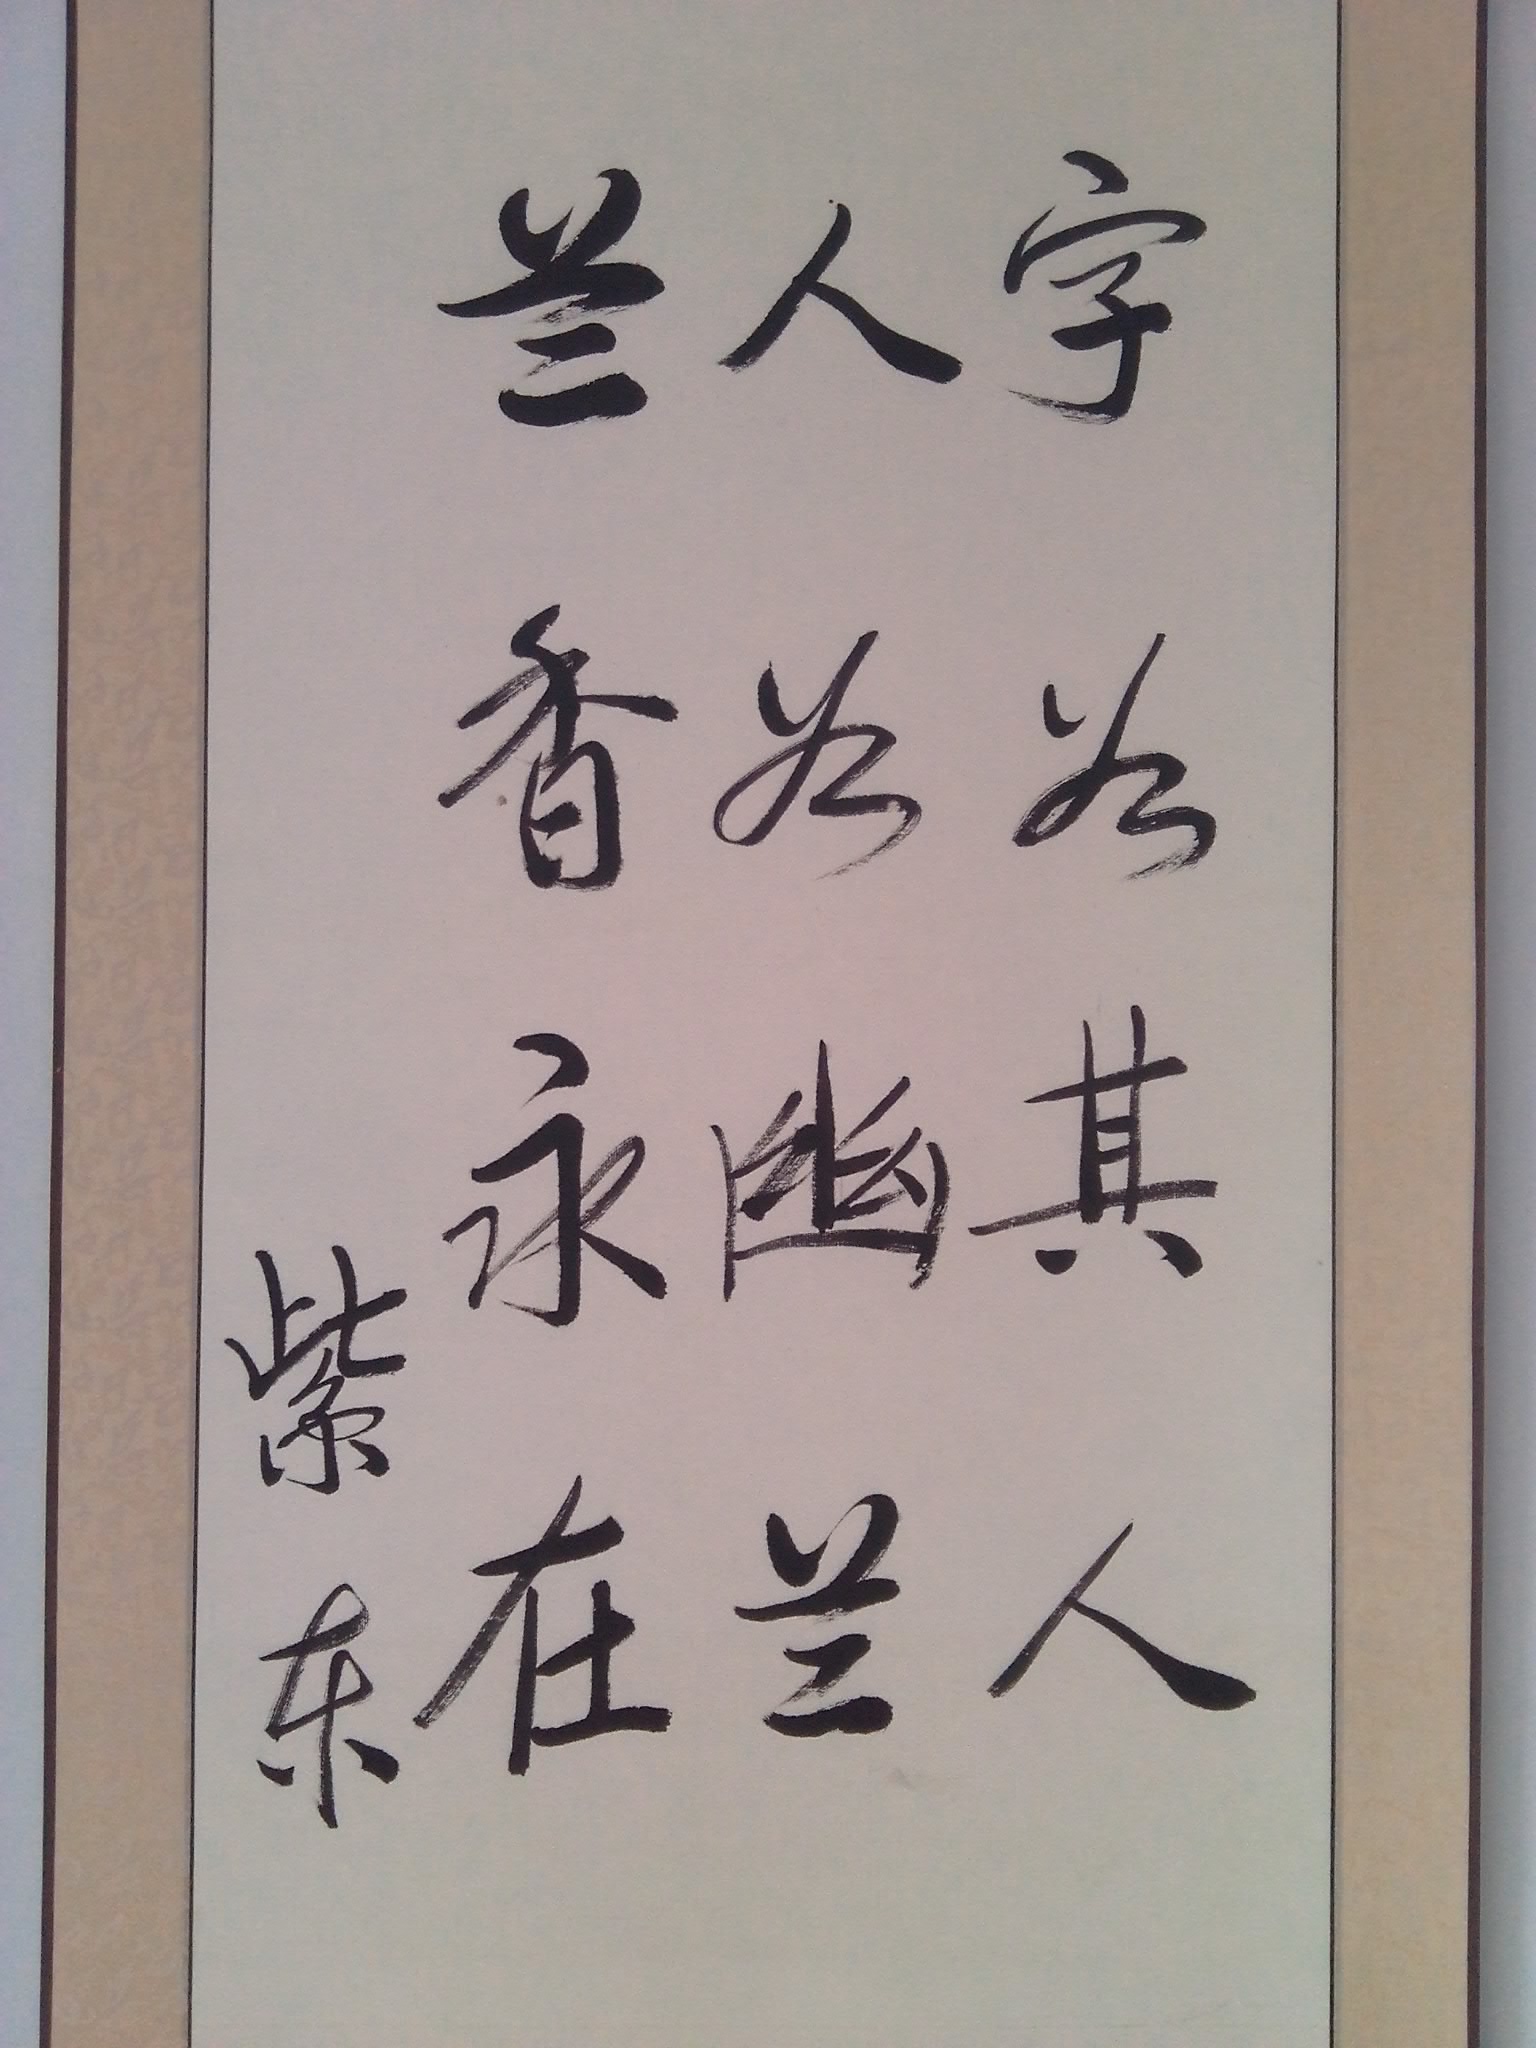 字如其人
人如幽兰
兰香永在
紫东